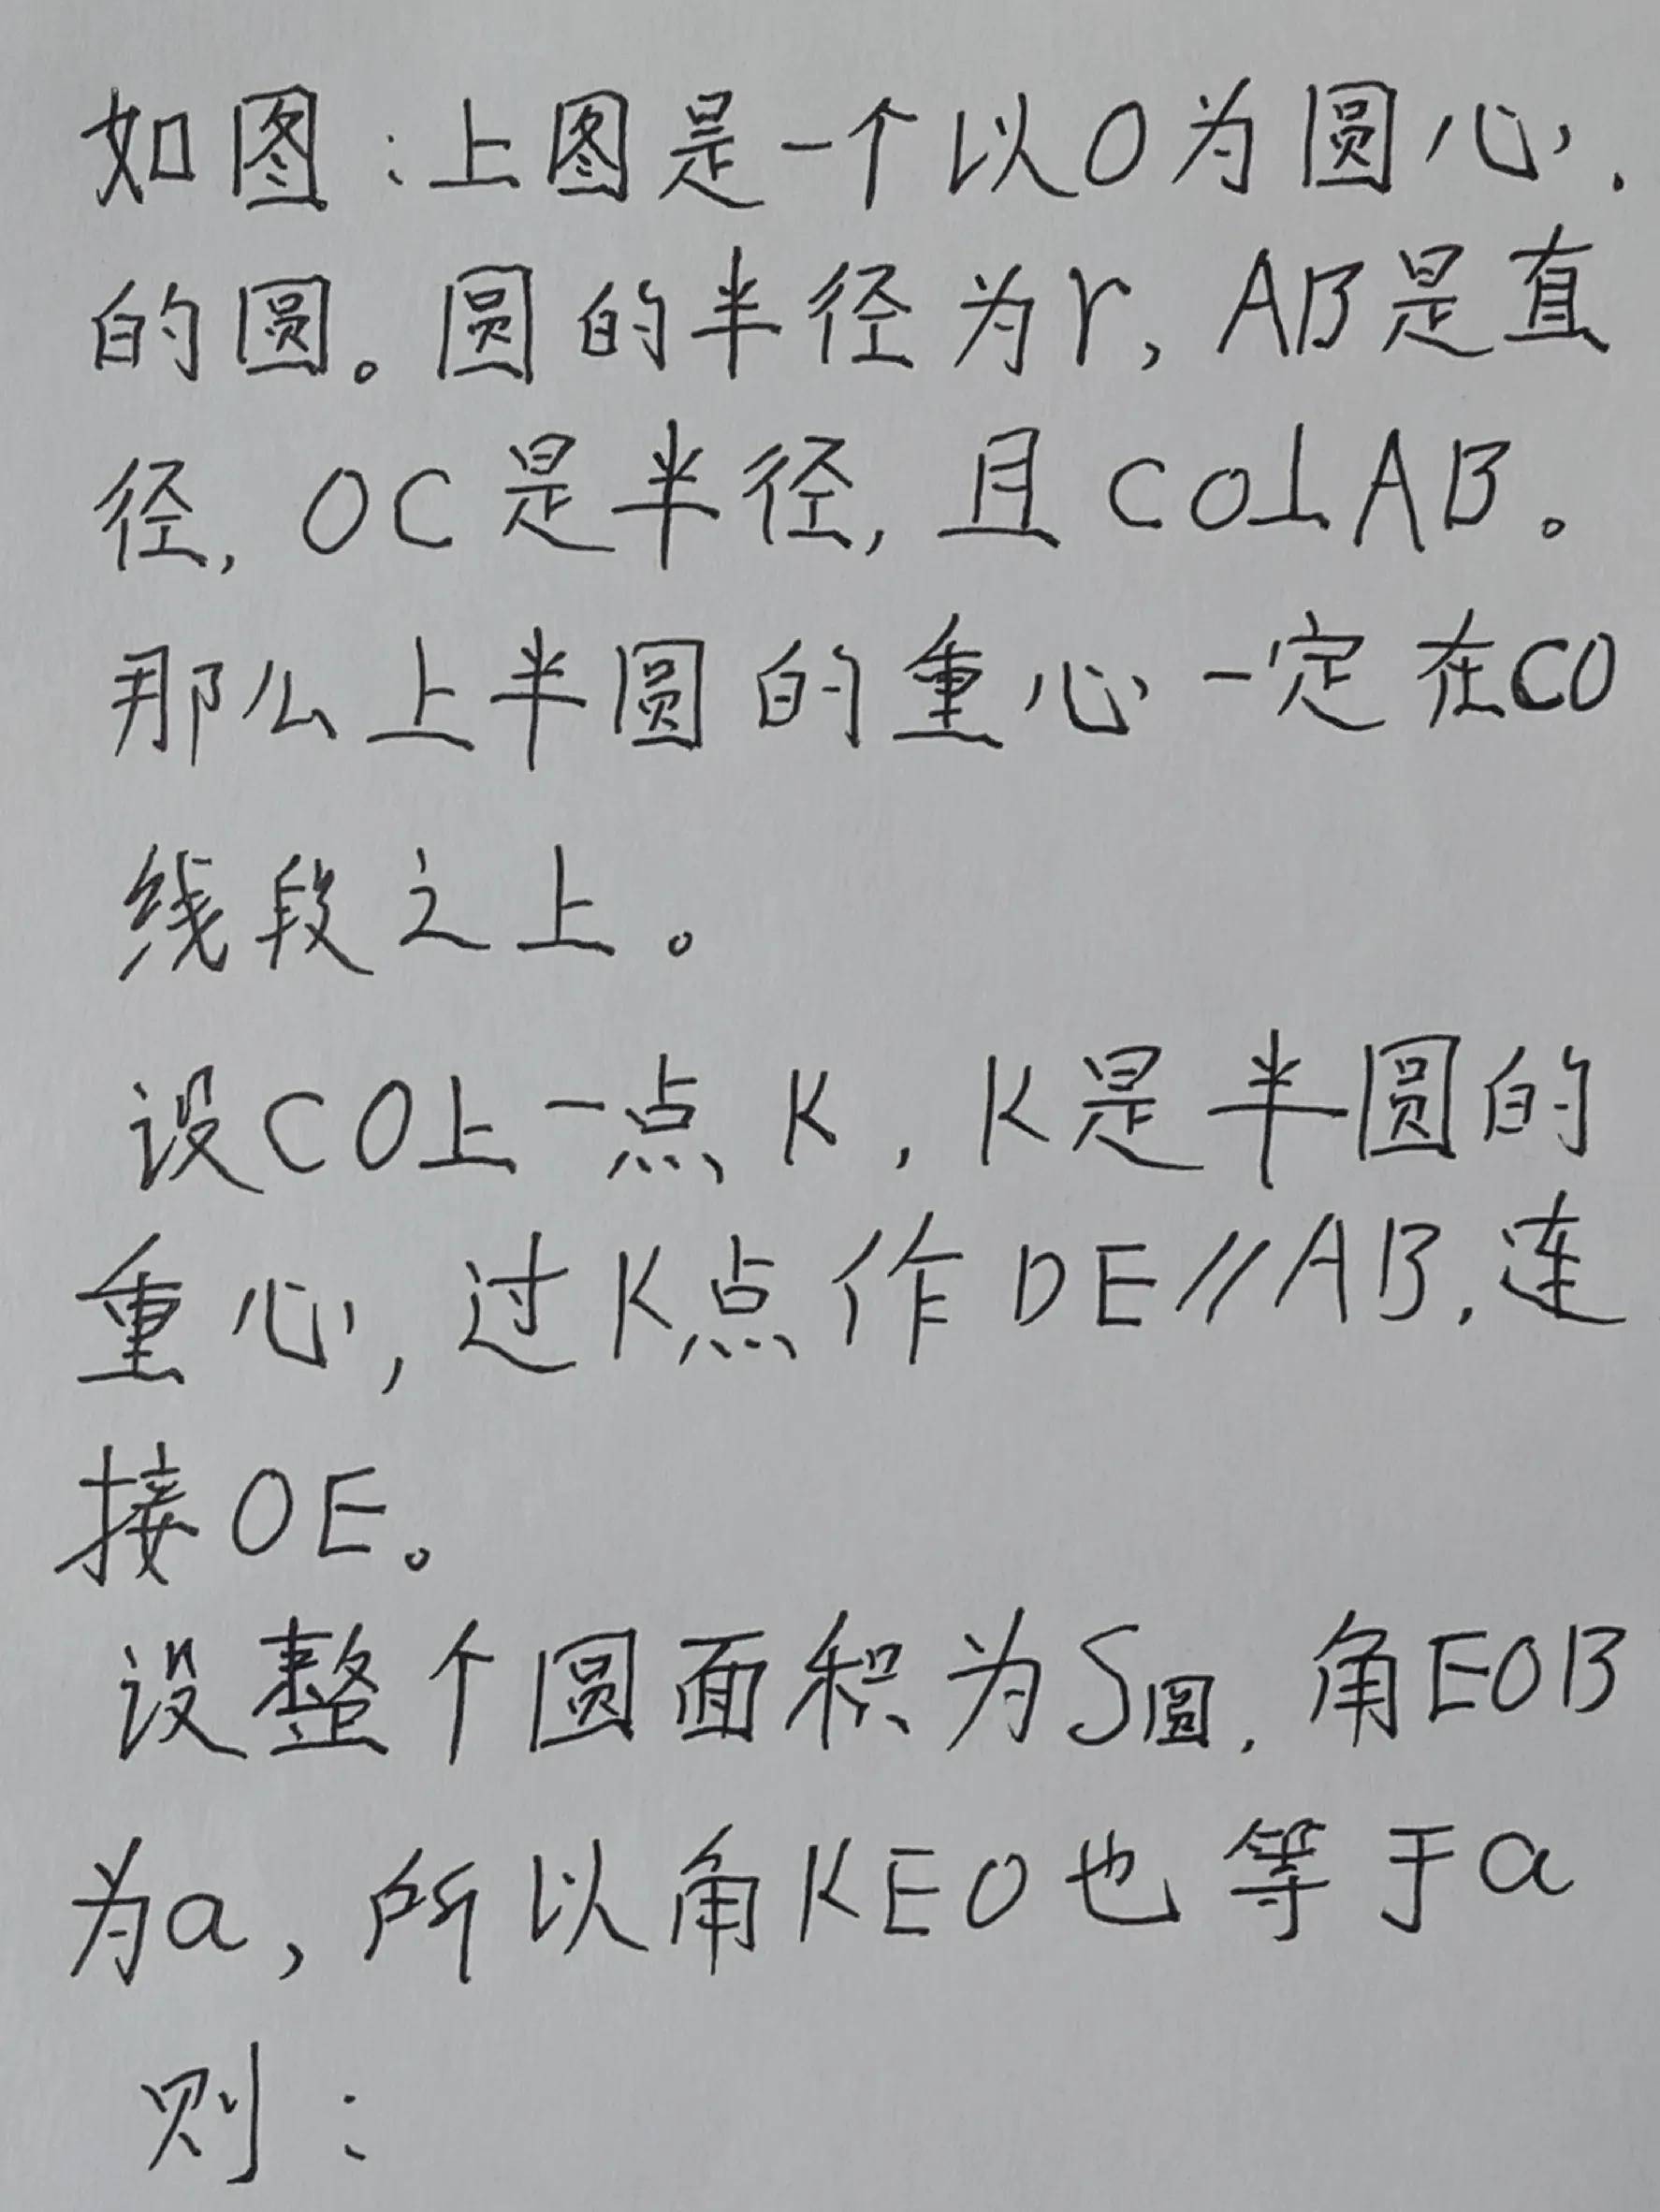 如图:上图是一个以O为圆心.
的圆。圆的半径为r,AB是直
径,OC是半径,且CO⊥AB。
那么上半圆的重心一定在CO
线段之上。
设CO上一点K,K是半圆的
重心,过K点作DE∥AB.连
接OE。
设整个圆面积为S圆.角EOB
为a,所以角KEO也等于a
则: